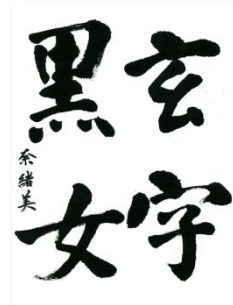 玄字
黒女
奈緒美